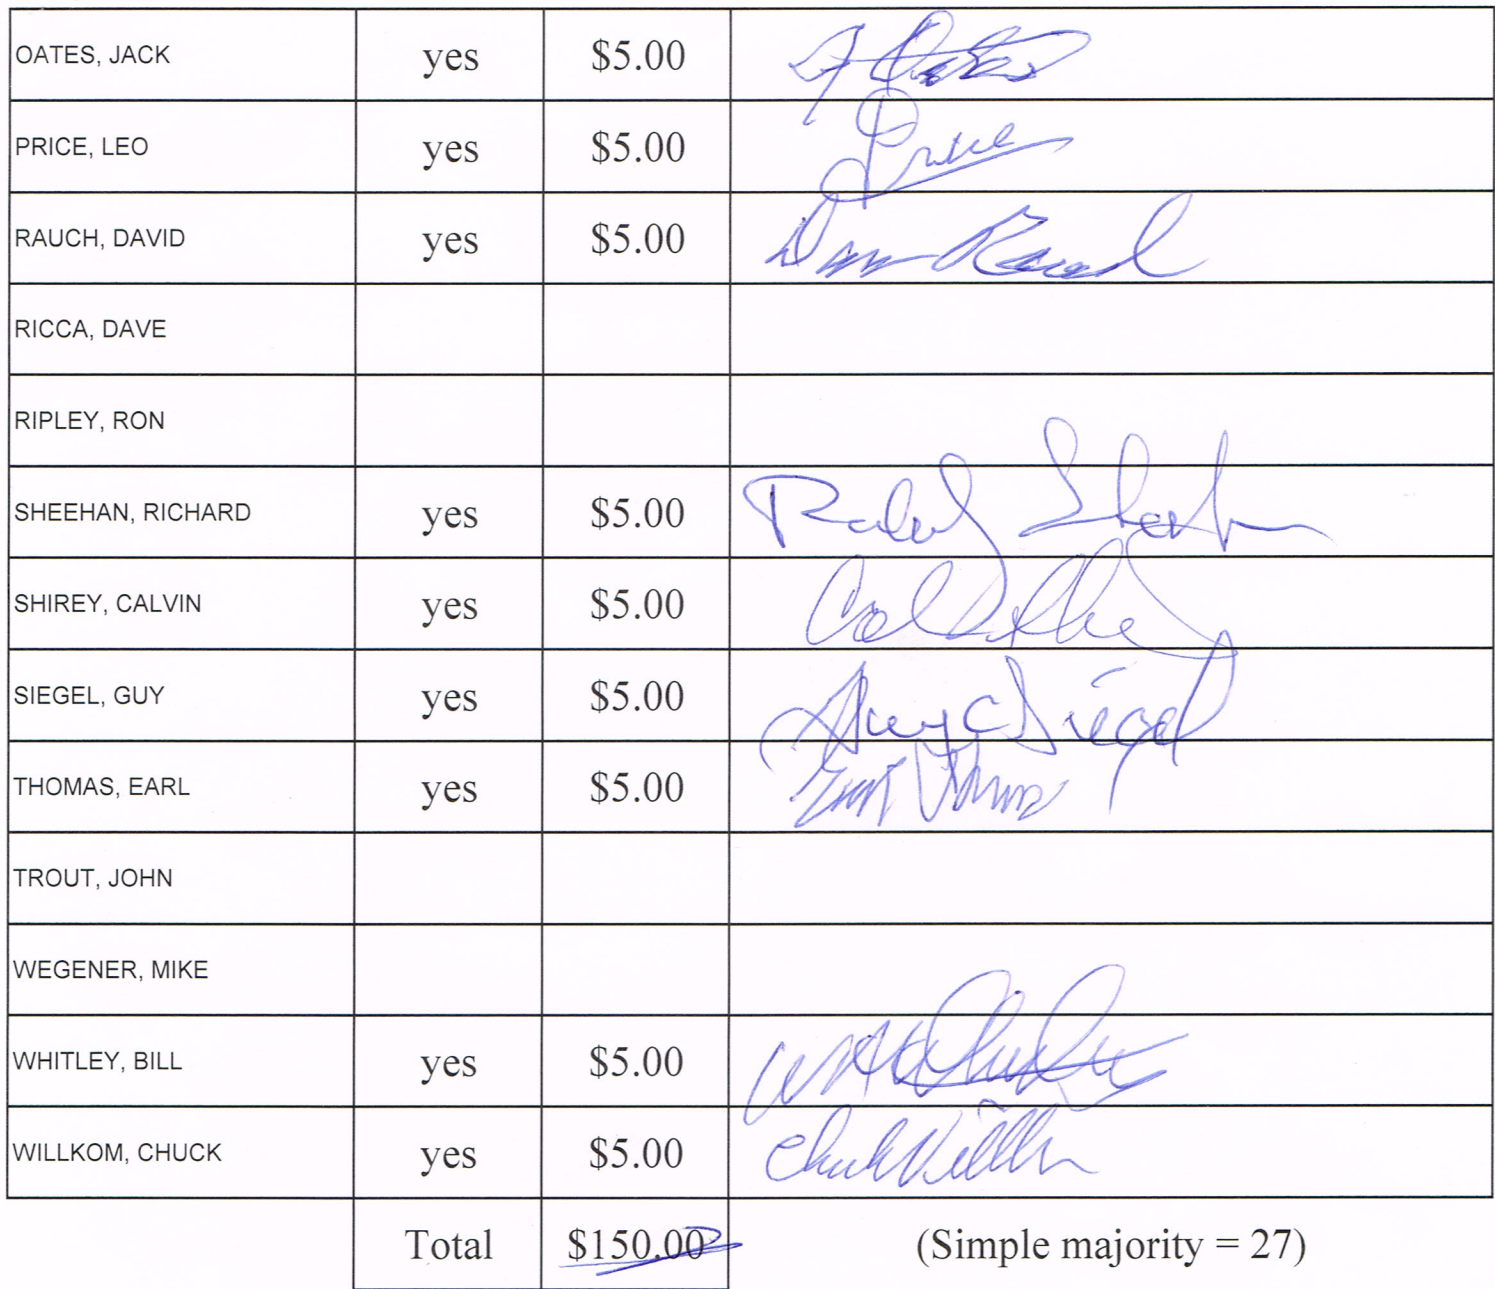 OATES, JACK yes $5.00 J Oates
PRICE, LEO yes $5.00 Price
RAUCH, DAVID yes $5.00
RICCA, DAVE
RIPLEY, RON
SHEEHAN, RICHARD yes $5.00
SHIREY, CALVIN yes $5.00
SIEGEL, GUY yes $5.00 Guy C Siegel
THOMAS, EARL yes $5.00 Earl Thomas
TROUT, JOHN
WEGENER, MIKE
WHITLEY, BILL yes $5.00
WILLKOM, CHUCK yes $5.00 Chuck Willkom
Total $150.00 (Simple majority = 27)